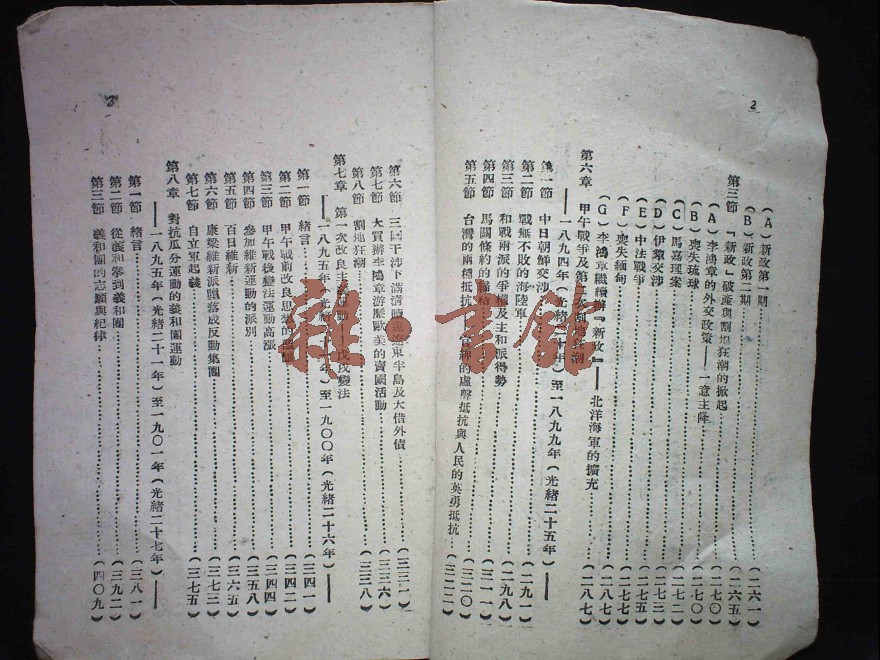 2
（A）新政第一期
（B）新政第二期……（二六一）
第三節 「新政」破產與割地狂潮的掀起……（二六五）
（A）李鴻章的外交政策——一意主降……（二七〇）
（B）喪失琉球……（二七〇）
（C）馬嘉理案……（二七二）
（D）伊犂交涉……（二七三）
（E）中法戰爭……（二七五）
（F）喪失緬甸……（二七七）
（G）李鴻章繼續『新政』——北洋海軍的擴充……（二八七）
第六章 甲午戰爭及第二次割地狂潮
——一八九四年（光緒二十年）至一八九九年（光緒二十五年）——
第一節 中日朝鮮交涉……（二九一）
第二節 戰無不敗的海陸軍……（二九八）
第三節 和戰兩派的爭權及主和派得勢……（三一一）
第四節 馬關條約的締結……（三二〇）
第五節 台灣的兩種抵抗 的虛聲抵抗與人民的英勇抵抗……（三二二）
3
第六節 三國干涉下滿淸贖還遼東半島及大借外債……（三三一）
第七節 大買辦李鴻章游歷歐美的賣國活動……（三三六）
第八節 割地狂潮……（三三八）
第七章 第一次改良主義運動——戊戌變法
——一八九五年（光緒二十一年）至一九〇〇年（光緒二十六年）——
第一節 緒言……（三四一）
第二節 甲午戰前改良思想的……（三四二）
第三節 甲午戰後變法運動高漲……（三四四）
第四節 參加維新運動的派別……（三五八）
第五節 百日維新……（三六五）
第六節 康梁維新派墮落成反動集團……（三七三）
第七節 自立軍起義……（三七五）
第八章 對抗瓜分運動的義和團運動
——一八九五年（光緒二十一年）至一九〇一年（光緒二十七年）——
第一節 緒言……（三八一）
第二節 從義和拳到義和團……（三九二）
第三節 義和團的志願與紀律……（四〇九）
雜·書館